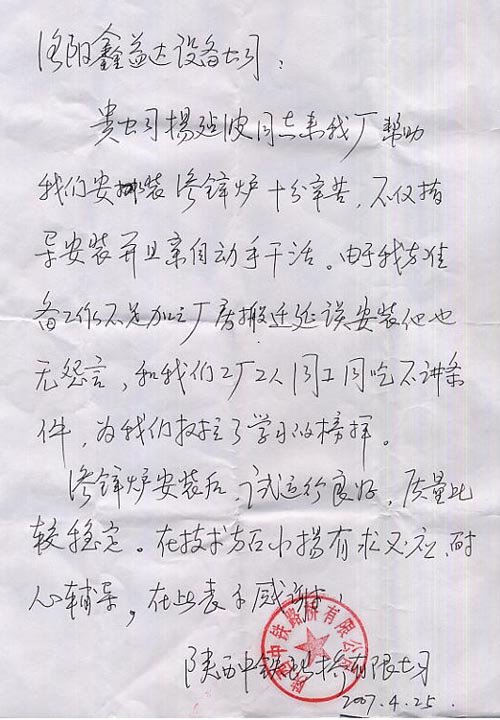 洛阳鑫益达设备公司:
贵公司杨延波同志来我厂帮助
我们安排装渗锌炉十分辛苦,不仅指
导安装并且亲自动手干活。由于我方准
备工作不足加之厂房搬迁延误安装他也
无怨言,和我们工厂工人同工同吃不讲条
件,为我们树立了学习的榜样。
渗锌炉安装后,试运行良好,质量比
较稳定。在技术方面小杨有求必应,耐
心辅导,在此表示感谢!
陕西中铁路桥有限公司
2007.4.25.